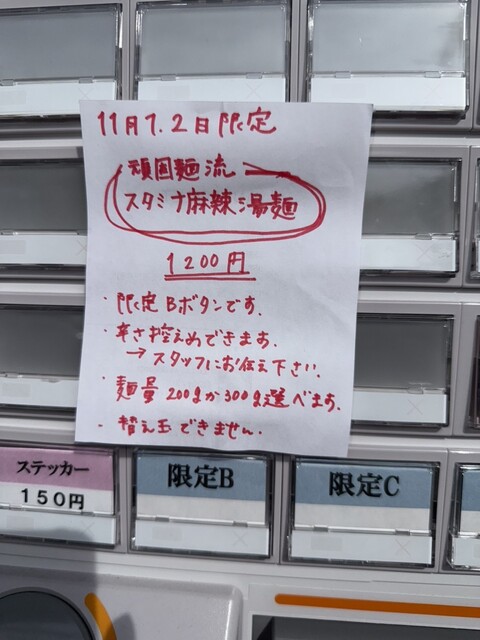 11月1.2日限定
頑固麺流
スタミナ麻辣湯麺
1200円
・限定Bボタンです.
・辛さ控えめできます.
→スタッフにお伝え下さい.
・麺量200gか300g選べます.
・替え玉できません.
ステッカー
150円
限定B
限定C